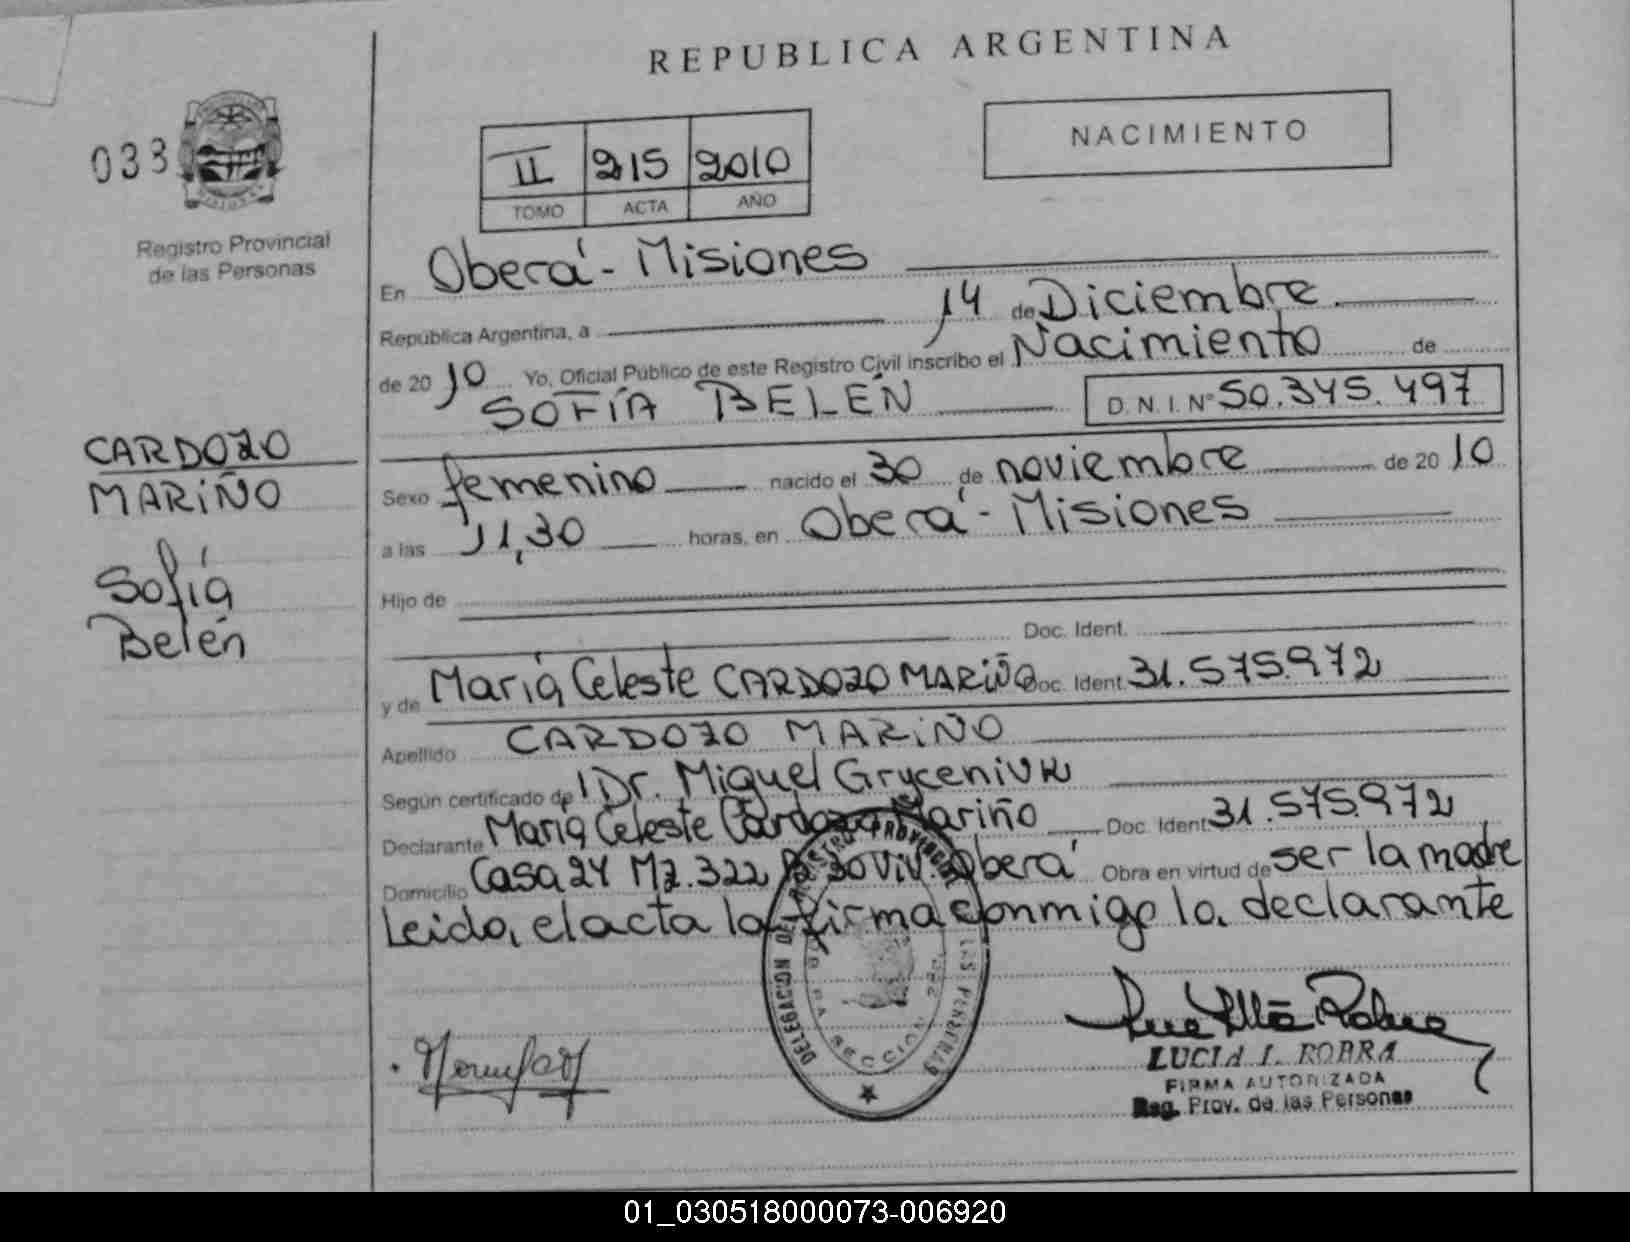 REPUBLICA ARGENTINA
033
NACIMIENTO
II 215 2010
TOMO ACTA AÑO
Registro Provincial
de las Personas
En Oberá - Misiones
República Argentina, a 14 de Diciembre
de 2010 Yo, Oficial Público de este Registro Civil inscribo el Nacimiento de
SOFÍA BELÉN D.N.I. Nº 50.345.497
CARDOZO
MARIÑO
Sofía
Belén
Sexo femenino nacido el 30 de noviembre de 2010
a las 11,30 horas, en Oberá - Misiones
Hijo de
Doc. Ident.
y de María Celeste CARDOZO MARIÑO Doc. Ident. 31.575.972
Apellido CARDOZO MARIÑO
Según certificado de Dr. Miguel Gryceniuk
Declarante María Celeste Cardozo Mariño Doc. Ident 31.575.972
Domicilio Casa 24 Mz. 322 30 Viv. Oberá Obra en virtud de ser la madre
Leida el acta la firma conmigo la declarante
DELEGACION DEL REGISTRO PROVINCIAL DE LAS PERSONAS
SECCION
LUCIA I. ROBRA
FIRMA AUTORIZADA
Reg. Prov. de las Personas
01_030518000073-006920